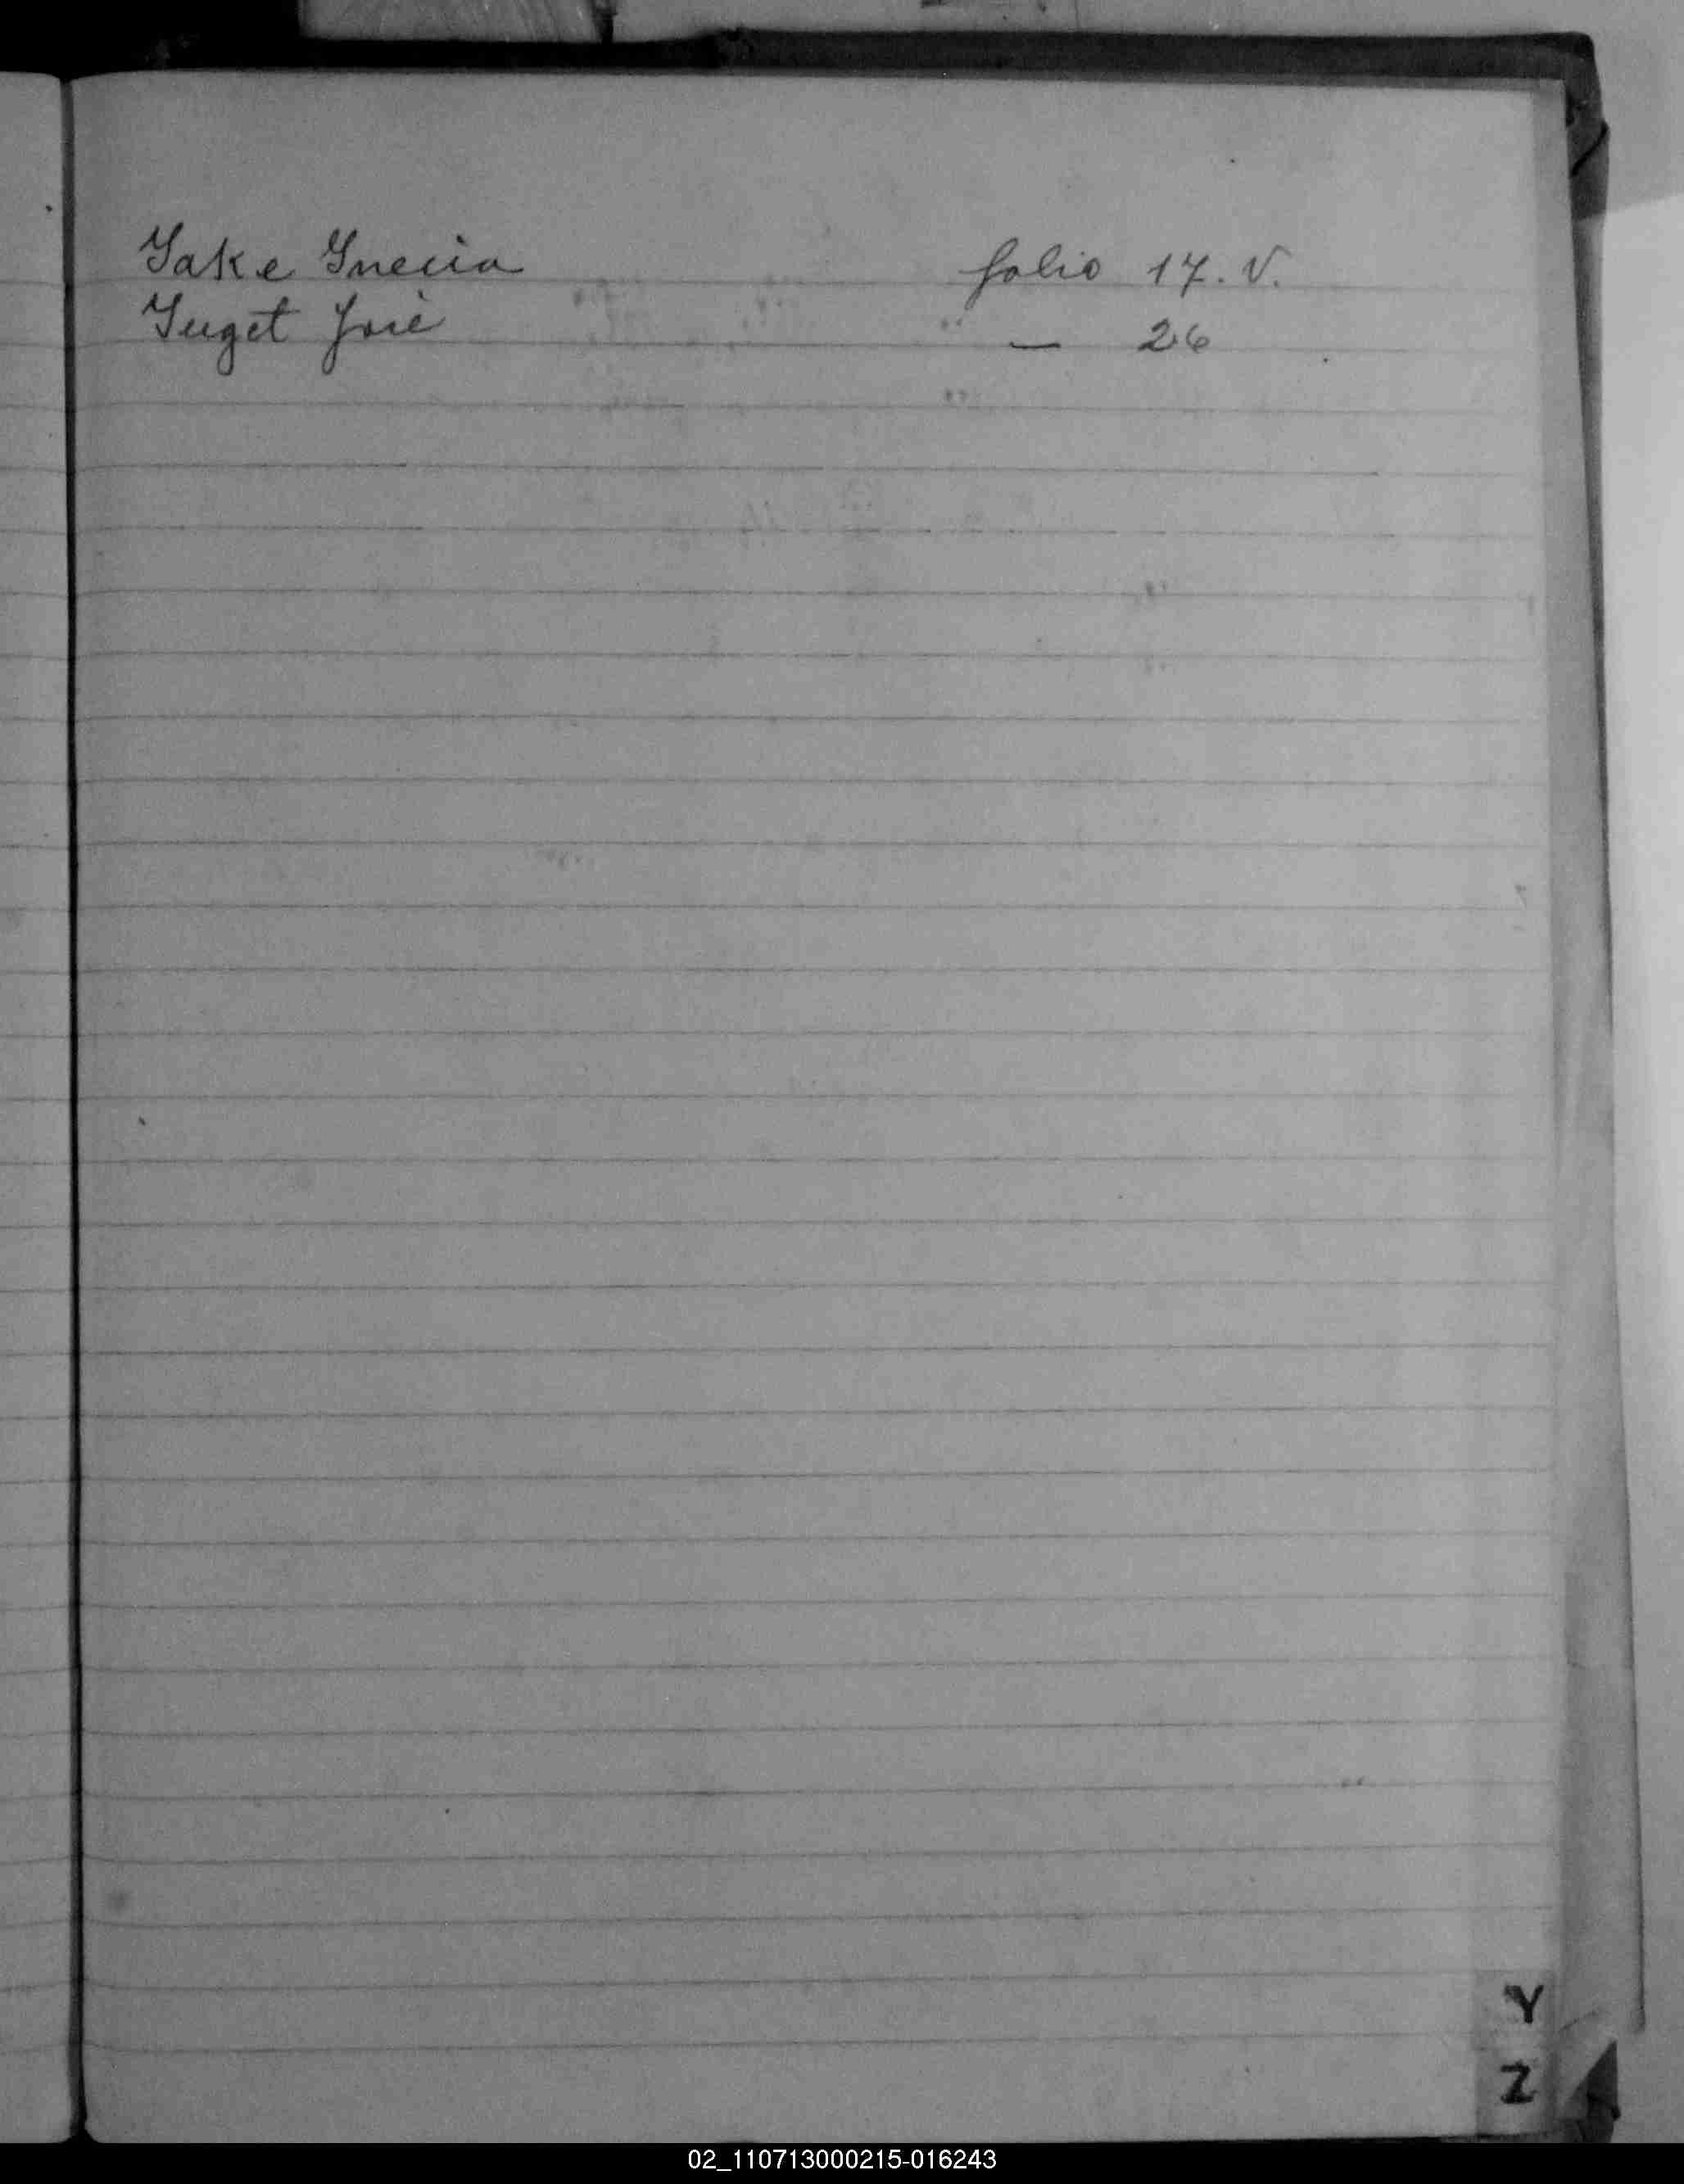 Yake Ynecia folio 17. V.
Yuget José — 26
Y
Z
02_110713000215-016243